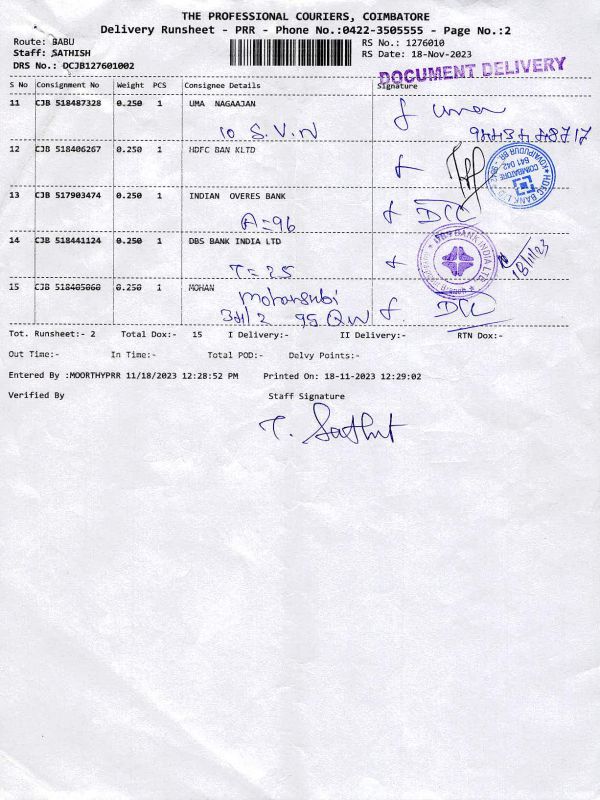 THE PROFESSIONAL COURIERS, COIMBATORE
Delivery Runsheet - PRR - Phone No.:0422-3505555 - Page No.:2
Route: BABU RS No.: 1276010
Staff: SATHISH RS Date: 18-Nov-2023
DRS No.: DCJB127601002 DOCUMENT DELIVERY
S No Consignment No Weight PCS Consignee Details Signature
11 CJB 518487328 0.250 1 UMA NAGAAJAN uma
10 S.V.N
12 CJB 518406267 0.250 1 HDFC BAN KLTD
HDFC BANK LTD. COIMBATORE 641 042
13 CJB 517903474 0.250 1 INDIAN OVERES BANK
A=96 DCC
14 CJB 518441124 0.250 1 DBS BANK INDIA LTD BANK INDIA LTD 18/11/23
T=25
15 CJB 518405068 0.250 1 MOHAN
Mohansubi DCC
95 QW
Tot. Runsheet:- 2 Total Dox:- 15 I Delivery:- II Delivery:- RTN Dox:-
Out Time:- In Time:- Total POD:- Delvy Points:-
Entered By :MOORTHYPRR 11/18/2023 12:28:52 PM Printed On: 18-11-2023 12:29:02
Verified By Staff Signature
T. Sathish